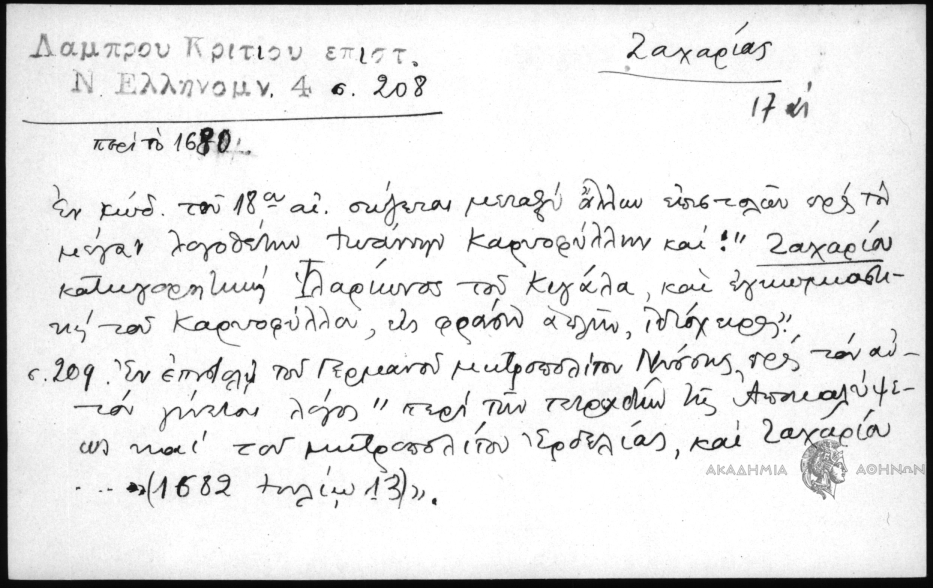 Λαμπρου Κριτιου επιστ.
Ν. Ελληνομν. 4 σ. 208
Ζαχαρίας
17 αἰ
περὶ τὸ 1680.
Ἐν κώδ. τοῦ 18ου αἰ. σώζεται μεταξὺ ἄλλων ἐπιστολῶν πρὸς τὸν
μέγαν λογοθέτην Ἰωάννην Καρυοφύλλην καὶ: "Ζαχαρίου
κατηγορητικὴ Ἱλαρίωνος τοῦ Κιγάλα, καὶ ἐγκωμιαστι-
κὴ τοῦ Καρυοφύλλου, εἰς φράσιν ἁπλῆν, ἰδιόχειρος".
σ. 209. Ἐν ἐπιστολῇ τοῦ Γερμανοῦ μητροπολίτου Νύσσης πρὸς τὸν αὐ-
τὸν γίνεται λόγος "περὶ τῶν τετραδίων τῆς Ἀποκαλύψε-
ως καὶ τοῦ μητροπολίτου Ἐρδελίας, καὶ Ζαχαρίου
....(1682 Ἰουλίῳ 13)".
ΑΚΑΔΗΜΙΑ ΑΘΗΝΩΝ